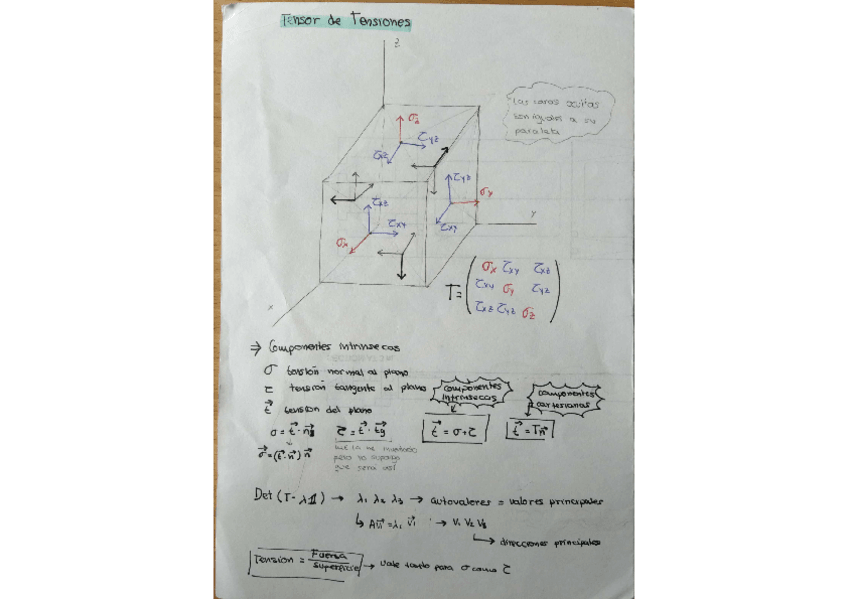 Tensor de Tensiones
z
Las caras ocultas
son iguales a su
paralela
σz
τyz
τxz
τyz
σy
τxz
τxy
τxy
σx
y
x
T = ( σx τxy τxz
τxy σy τyz
τxz τyz σz )
⇒ Componentes intrinsecas
σ tensión normal al plano
τ tensión tangente al plano
t⃗ tension del plano
componentes
intrinsecas
componentes
cartesianas
σ = t⃗ · n⃗
τ = t⃗ · tg
t⃗ = σ + τ
t⃗ = Tn⃗
σ⃗ = (t⃗ · n⃗) n⃗
pero lo supongo
que será así
Det (T - λ1) → λ1 λ2 λ3 → autovalores = valores principales
↳ Av⃗i = λi v⃗i → V1 V2 V3
↳ direcciones principales
Tension = Fuerza / superficie → vale tanto para σ como τ